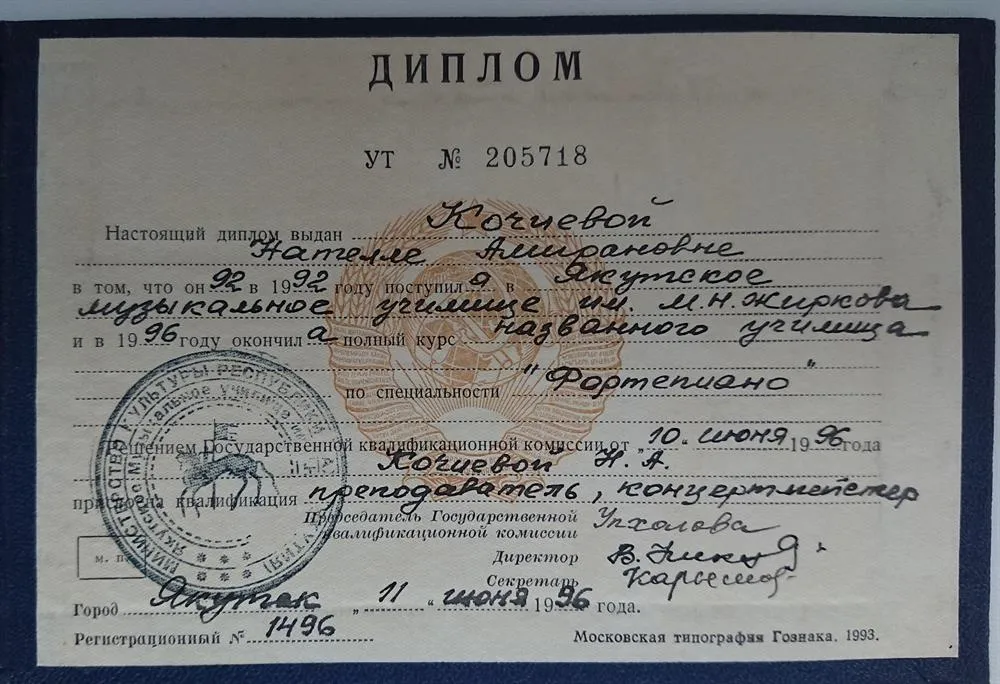 ДИПЛОМ
УТ № 205718
Настоящий диплом выдан Кочиевой
Нателле Амирановне
в том, что он 92 в 1992 году поступил я в Якутское
музыкальное училище им. М.Н. Жиркова
и в 1996 году окончил а полный курс названного училища
по специальности "Фортепиано"
Решением Государственной квалификационной комиссии от „10“ июня 1996 года
Кочиевой Н. А.
присвоена квалификация преподаватель, концертмейстер
Председатель Государственной
квалификационной комиссии
Директор
Секретарь
м. п.
Город Якутск „11“ июня 1996 года.
Регистрационный № 1496
Московская типография Гознака. 1993.
МИНИСТЕРСТВО КУЛЬТУРЫ РЕСПУБЛИКИ